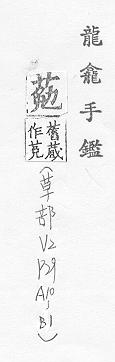 龍龕手鑑
舊藏
作
(草部 V2 P39 A10, B1)